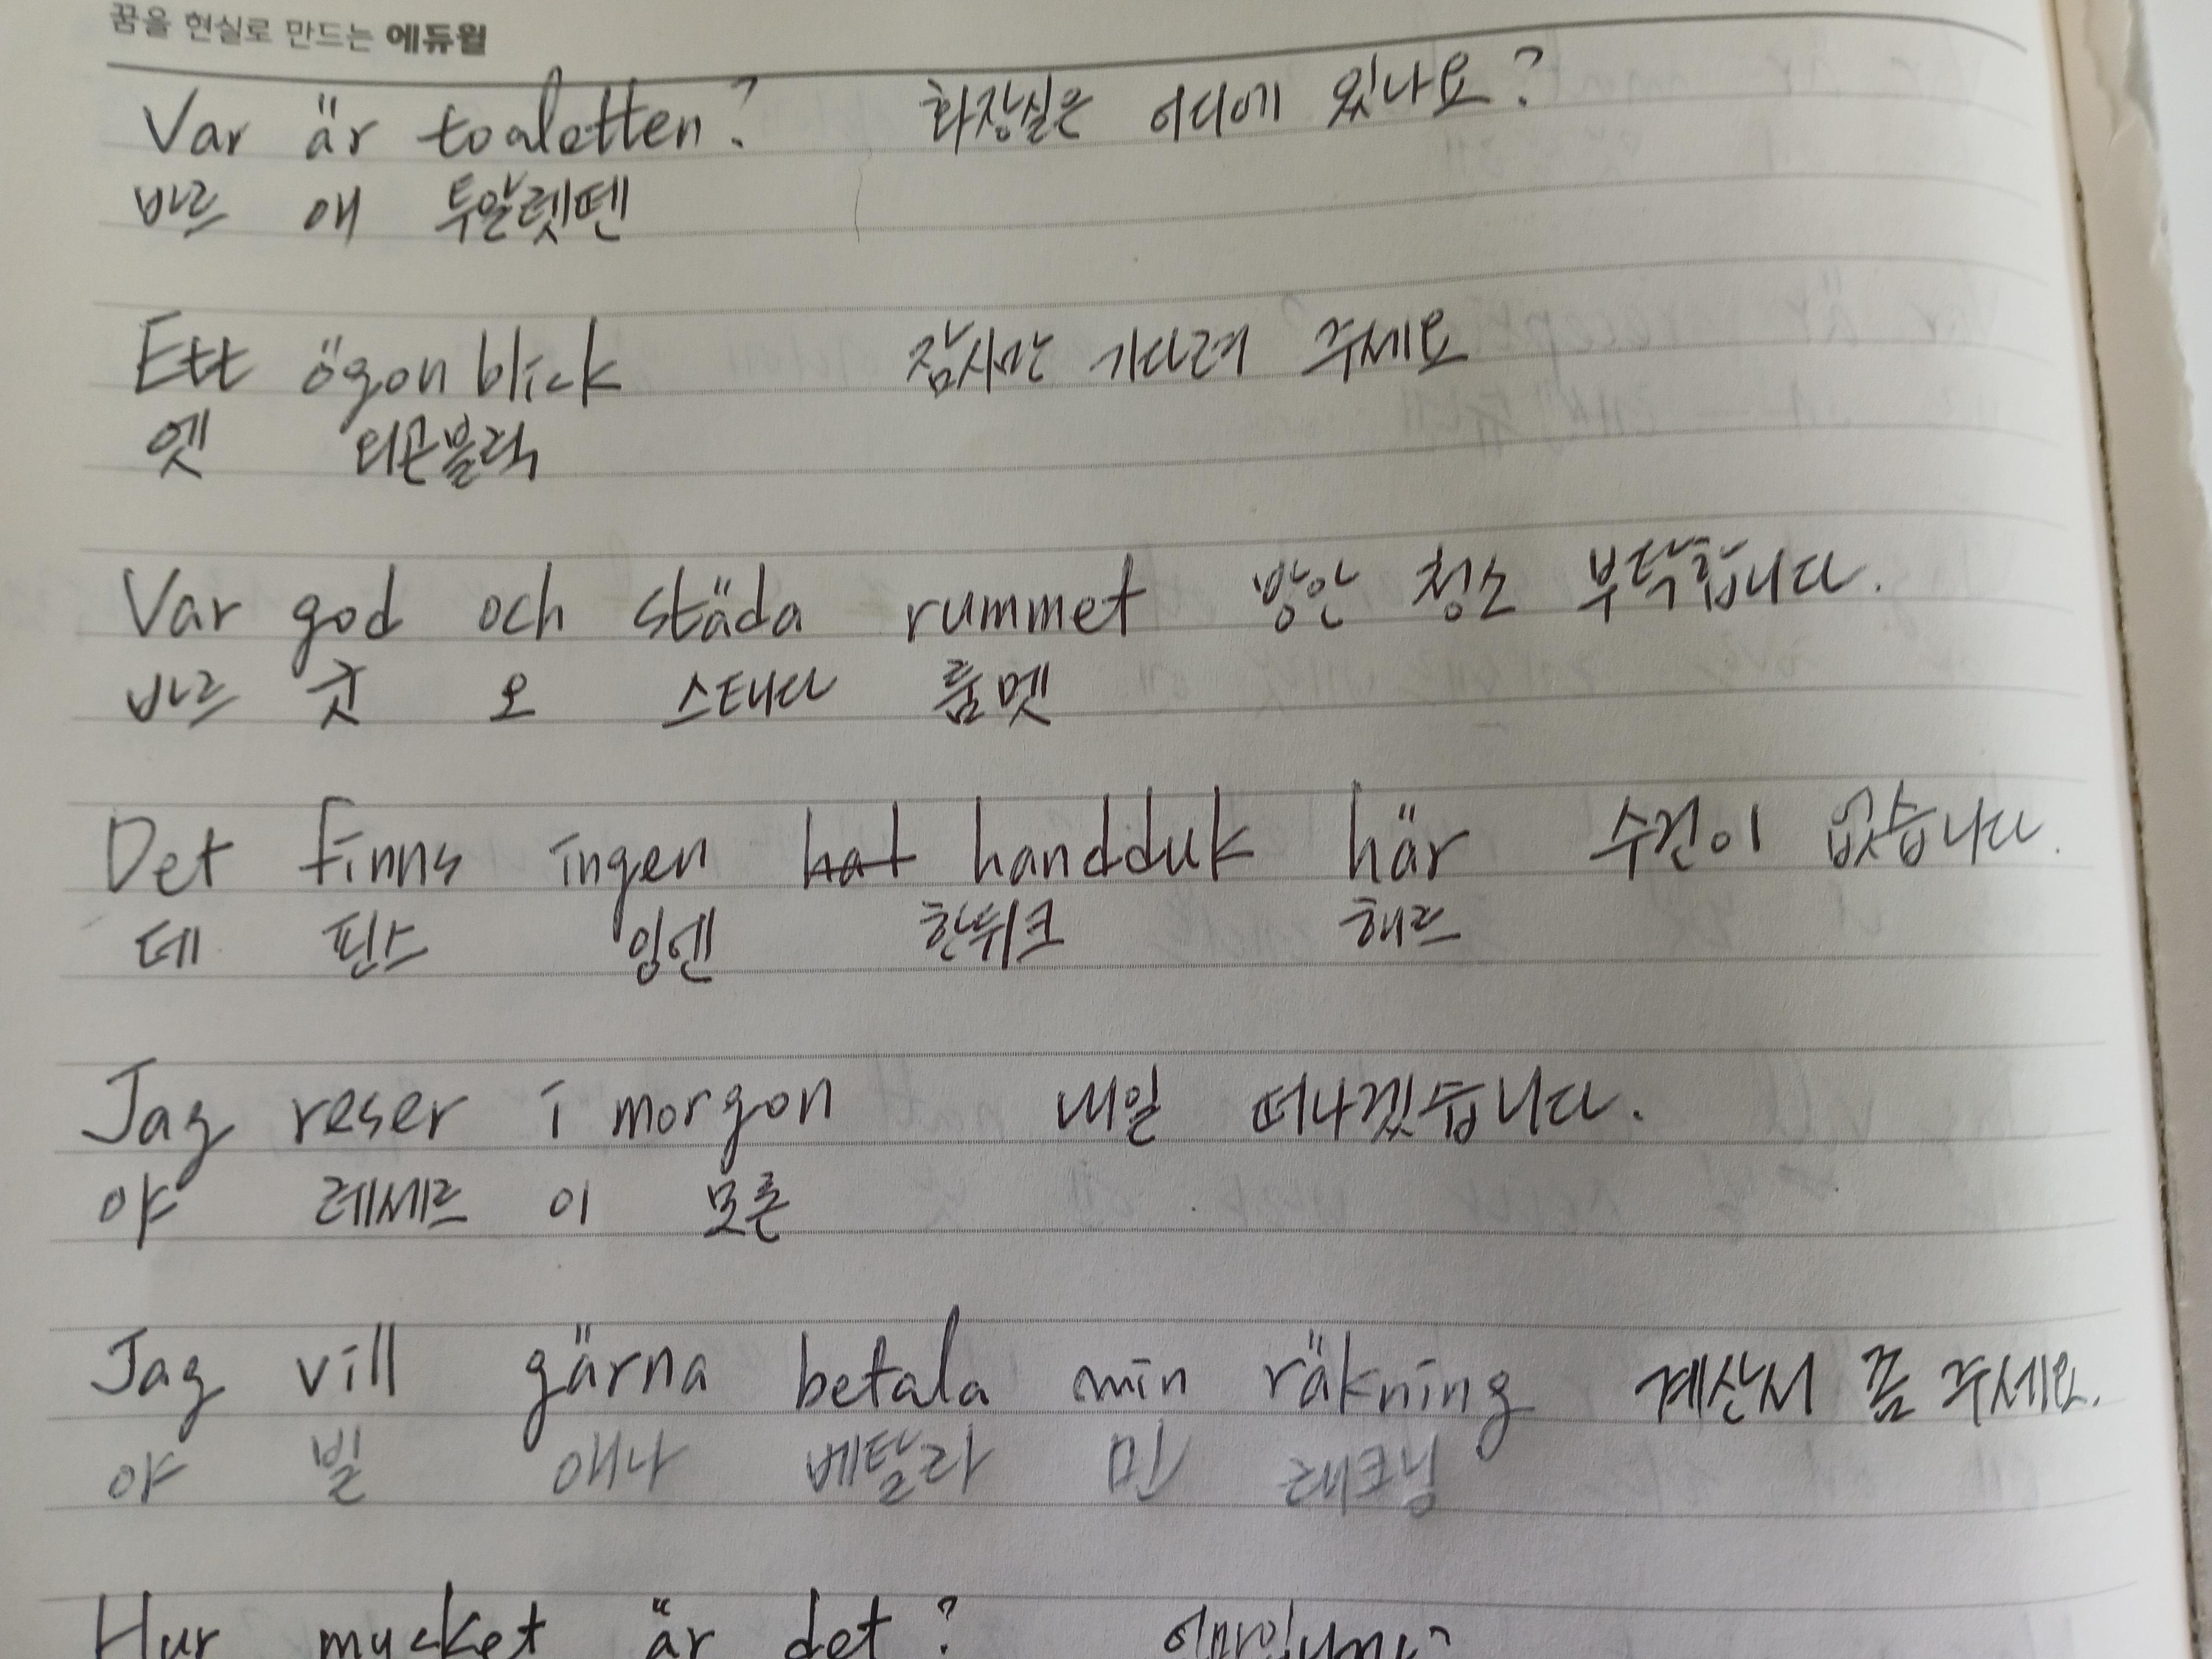 꿈을 현실로 만드는 에듀윌
Var är toaletten? 화장실은 어디에 있나요?
바르 애 투알렛뗀
Ett ögonblick 잠시만 기다려 주세요
엣 외곤블릭
Var god och städa rummet 방안 청소 부탁합니다.
바르 굿 오 스태다 룸멧
Det finns ingen hat handduk här 수건이 없습니다.
데 핀스 잉엔 한뒤크 해르
Jag reser i morgon 내일 떠나겠습니다.
야 레세르 이 모론
Jag vill gärna betala min räkning 계산서 좀 주세요.
야 빌 얘나 베탈라 민 래크닝
Hur mycket är det? 얼마입니까?